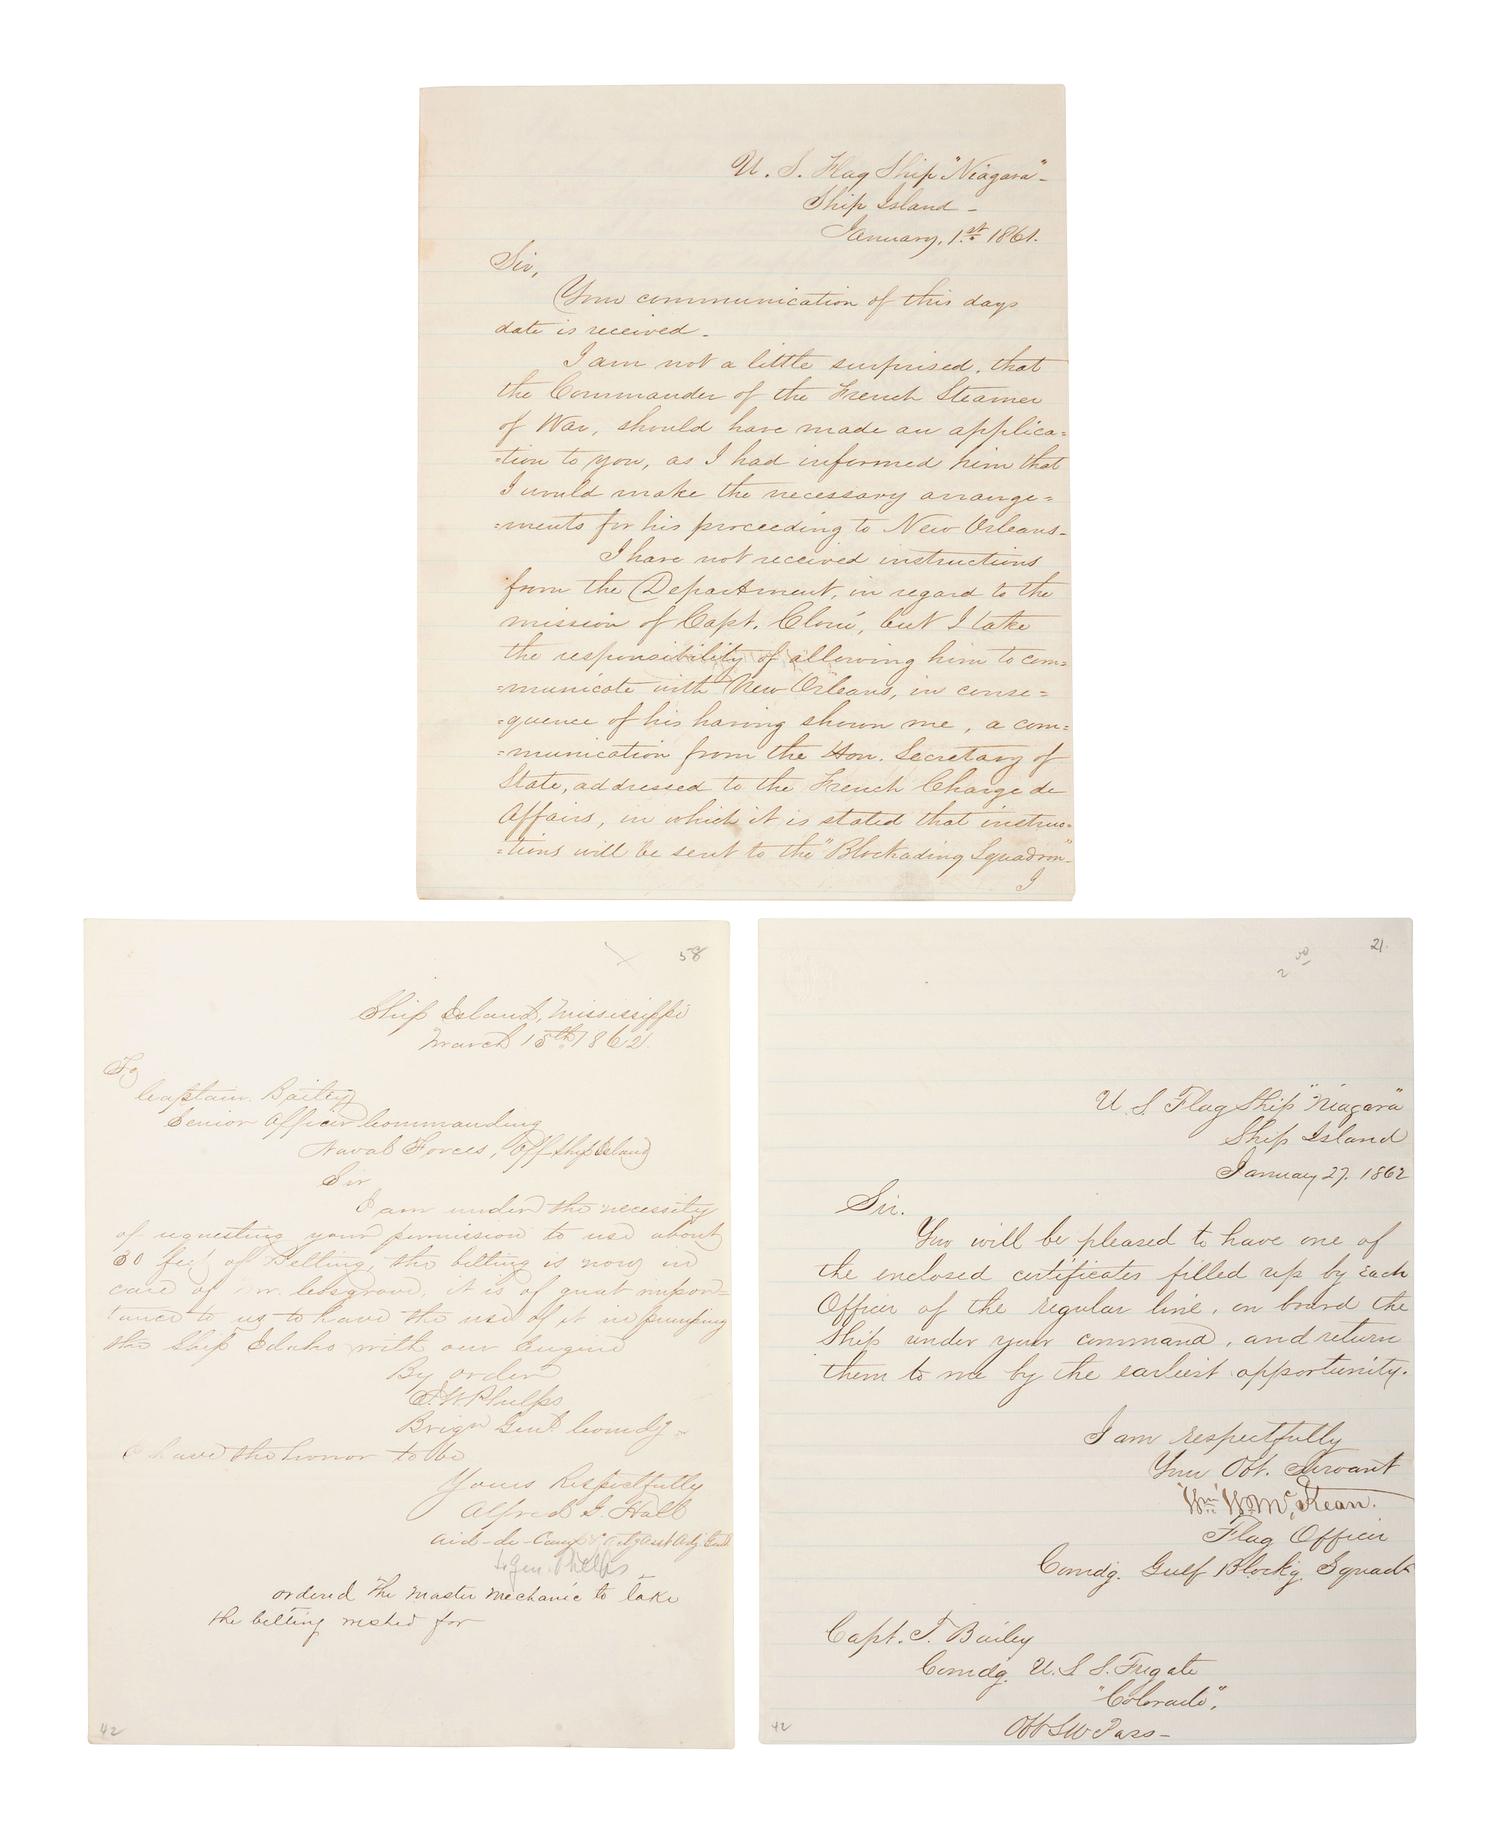 U. S. Flag Ship "Niagara" -
Ship Island -
January, 1st. 1861.
Sir,
Your communication of this days
date is received -
I am not a little surprised, that
the Commander of the French Steamer
of War, should have made an applica=
=tion to you, as I had informed him that
I would make the necessary arrange=
=ments for his proceeding to New Orleans -
I have not received instructions
from the Department, in regard to the
mission of Capt. Cloué, but I take
the responsibility of allowing him to com=
=municate with New Orleans, in conse=
=quence of his having shown me, a com=
=munication from the Hon. Secretary of
State, addressed to the French Charge de
Affairs, in which it is stated that instruc=
=tions will be sent to the "Blockading Squadron" -
I
58
Ship Island, Mississippi
March 18th 1862
To
Captain Bailey
Senior Officer Commanding
Naval Forces, Off Ship Island
Sir
I am under the necessity
of requesting your permission to use about
30 feet of Belting, the belting is now in
care of Mr. Cosgrove, it is of great impor=
tance to us to have the use of it in pumping
the Ship Idaho with our Engine
By order
J. W. Phelps
Brigr Genl. Comdg -
I have the honor to be
Yours Respectfully
Alfred G. Hall
Aid-de-Camp & actg Asst Adj Genl
to Gen. Phelps
ordered the master mechanic to take
the belting wished for
42
21.
U S Flag Ship "Niagara"
Ship Island
January 27. 1862
Sir.
You will be pleased to have one of
the enclosed certificates filled up by each
Officer of the regular line, on board the
Ship under your command, and return
them to me by the earliest opportunity.
I am respectfully
Your Obt. Servant
Wm W. McKean.
Flag Officer
Comdg. Gulf Blockg. Squadn
Capt. T. Bailey
Comdg. U. S. S. Frigate
"Colorado",
Off S W Pass -
42